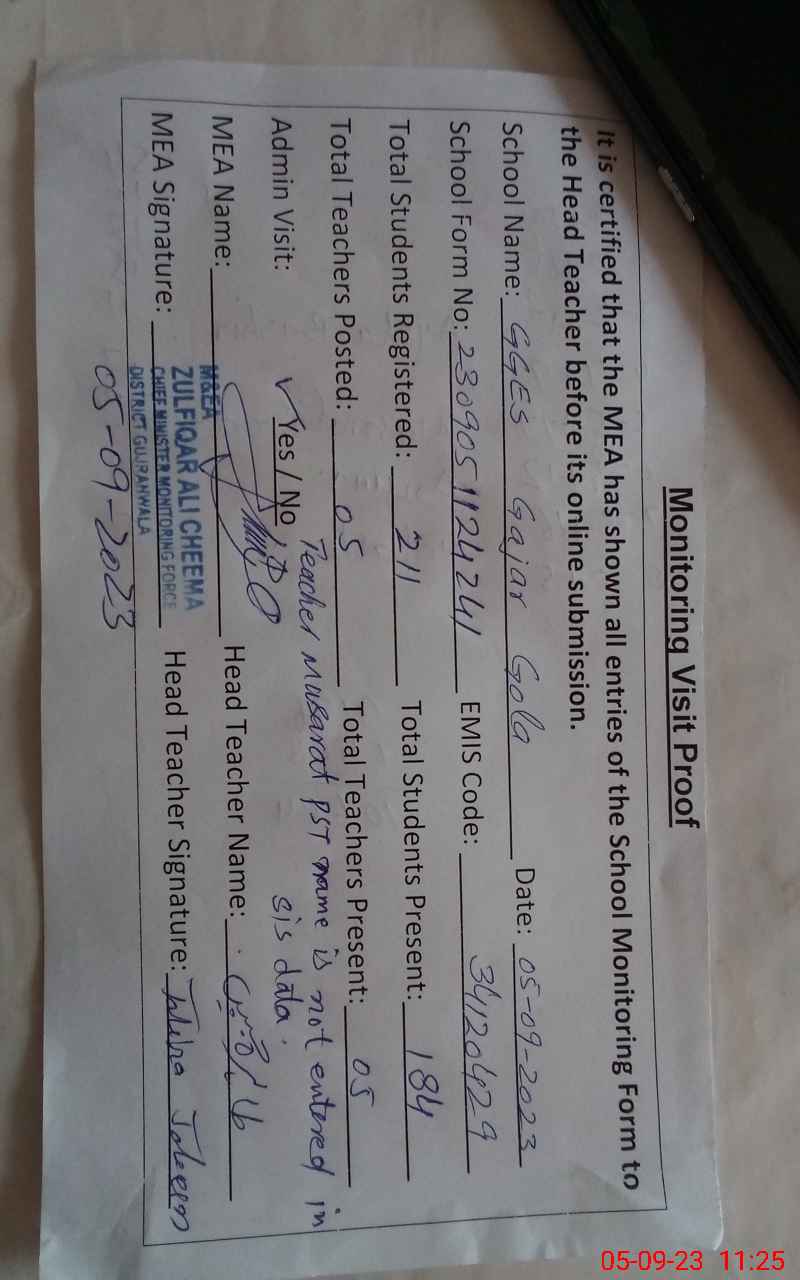 Monitoring Visit Proof
It is certified that the MEA has shown all entries of the School Monitoring Form to
the Head Teacher before its online submission.
School Name: GGES Gajar Gola Date: 05-09-2023
School Form No: 2309051124241 EMIS Code: 34120429
Total Students Registered: 211 Total Students Present: 184
Total Teachers Posted: 05 Total Teachers Present: 05
Admin Visit: ✓ Yes / No Teacher Musarat PST name is not entered in
sis data.
MEA Name: Head Teacher Name:
M&EA
ZULFIQAR ALI CHEEMA
CHIEF MINISTER MONITORING FORCE
DISTRICT GUJRANWALA
MEA Signature: Head Teacher Signature:
05-09-2023
05-09-23 11:25